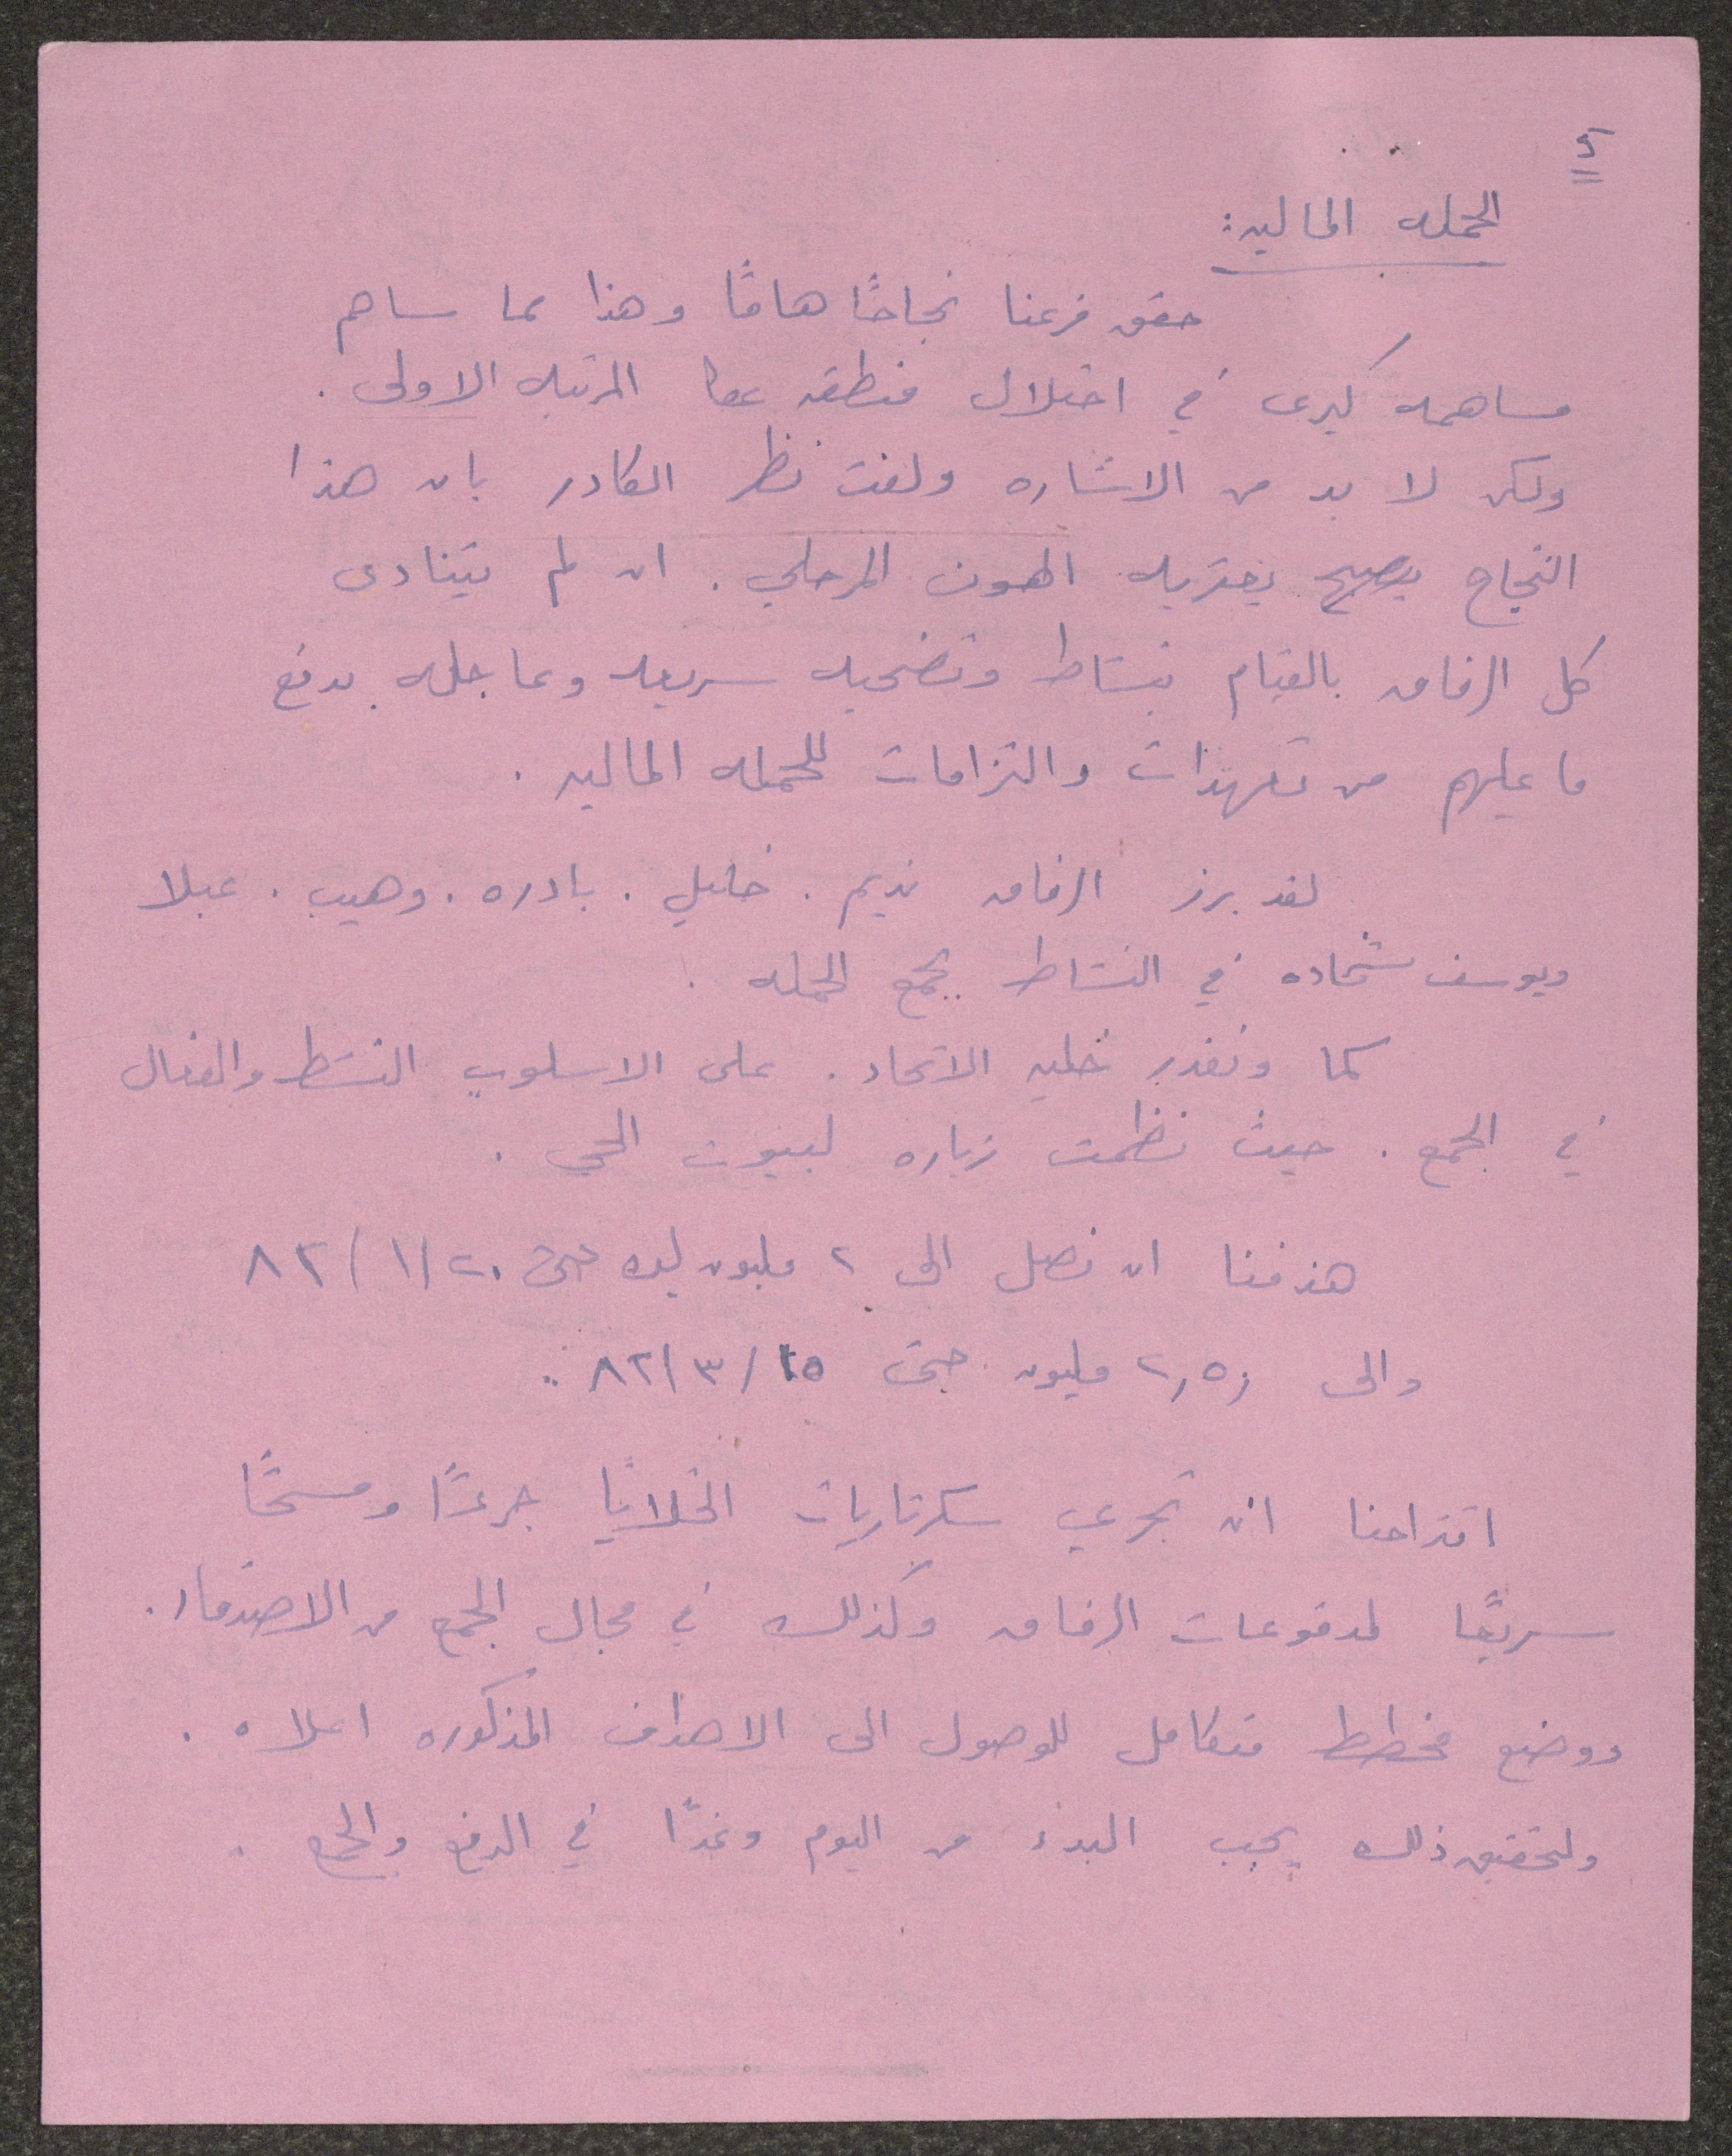 الحمله الماليه:
حقق فرعنا نجاحًا هامًا وهذا مما ساهم
مساهمه كبرى في احتلال منطقه عكا المرتبه الاولى.
ولكن لا بد من الاشاره ولفت نظر الكادر بان هذا
النجاح يصبح يعتريه الهون المرحلي. ان لم يتنادى
كل الرفاق بالقيام بنشاط وتضحيه سريعه وعاجله بدفع
ما عليهم من تعهدات والتزامات للحمله الماليه.
لقد برز الرفاق نديم. خليلي. بادره. وهيب. عبلا
ويوسف شحاده في النشاط بجمع الحمله.
كما ونقدر خليه الاتحاد. على الاسلوب النشط والفعال
في الجمع. حيث نظمت زياره لبيوت الحي.
هدفنا ان نصل الى ٢ مليون ليره حتى ٢٠/١/٨٢
والى ٢,٥٠ مليون حتى ١٥/٣/٨٢..
اقتراحنا ان تجري سكرتاريات الخلايا جردًا ومسحًا
سريعًا لمدفوعات الرفاق وكذلك في مجال الجمع من الاصدقاء.
ووضع مخطط متكامل للوصول الى الاهداف المذكوره اعلاه.
ولتحقيق ذلك يجب البدء من اليوم وغدًا في الدفع والجمع.